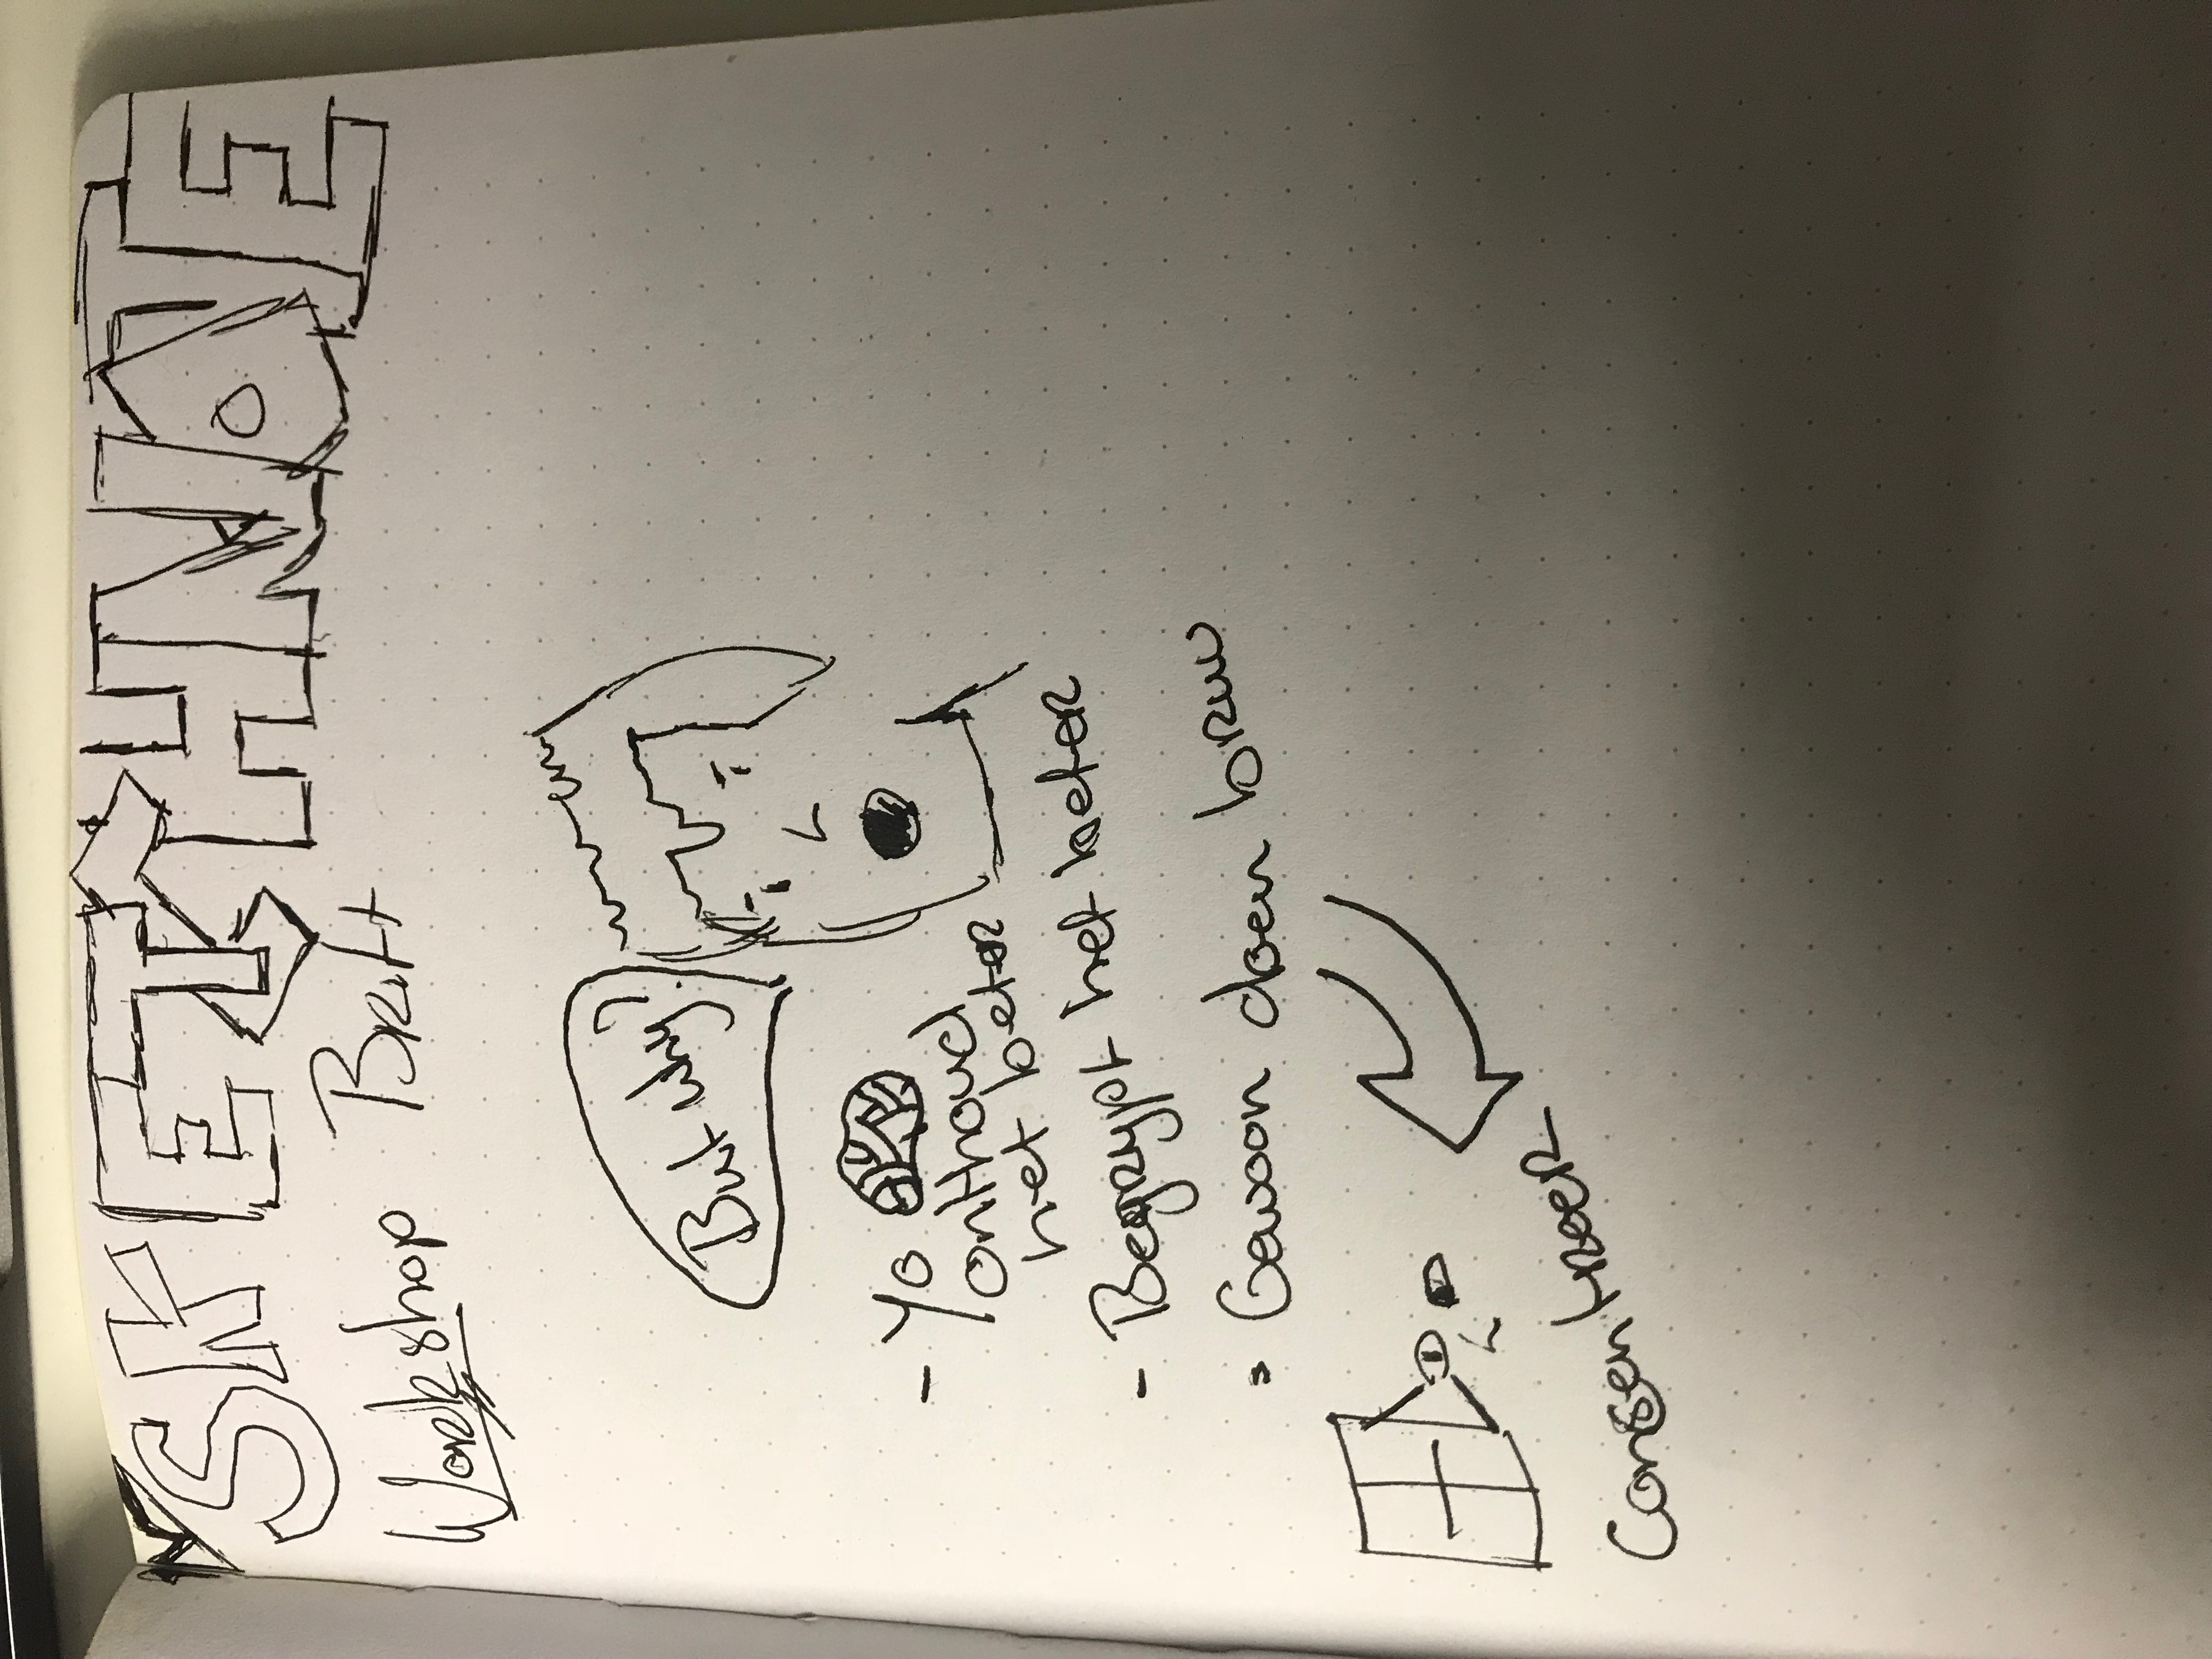 SKETCHNOTE
Workshop Britt
But why?
- Yo
onthoud
het beter
- Begrypt het beter
- Gewoon doen bruv
Consentreer